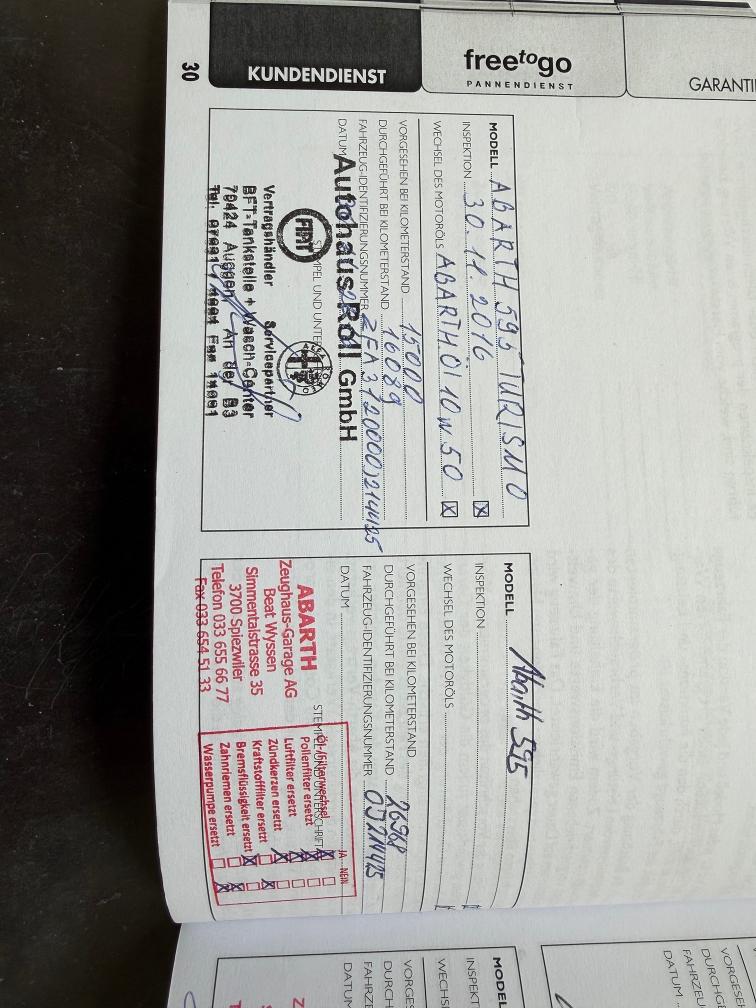 30
KUNDENDIENST
freetogo
PANNENDIENST
GARANTI
MODELL ABARTH 595 TURISMO
INSPEKTION 30.11.2016 X
WECHSEL DES MOTORÖLS ABARTH Öl 10 W 50 X
VORGESEHEN BEI KILOMETERSTAND 15000
DURCHGEFÜHRT BEI KILOMETERSTAND 16089
FAHRZEUG-IDENTIFIZIERUNGSNUMMER
DATUM
Autohaus Roll GmbH
STEMPEL UND UNTER
FIAT
Vertragshändler Servicepartner
BFT-Tankstelle + Wasch-Center
79424 Auggen An der B3
Tel.
MODELL Abarth 595
INSPEKTION
WECHSEL DES MOTORÖLS
VORGESEHEN BEI KILOMETERSTAND
DURCHGEFÜHRT BEI KILOMETERSTAND 26968
FAHRZEUG-IDENTIFIZIERUNGSNUMMER 0J214425
DATUM
STEMPEL UND UNTERSCHRIFT
ABARTH
Zeughaus-Garage AG
Beat Wyssen
Simmentalstrasse 35
3700 Spiezwiler
Telefon 033 655 66 77
Fax 033 654 51 33
JA NEIN
Öl-/Filterwechsel
Pollenfilter ersetzt
Luftfilter ersetzt
Zündkerzen ersetzt
Kraftstofffilter ersetzt
Bremsflüssigkeit ersetzt
Zahnriemen ersetzt
Wasserpumpe ersetzt
MODEL
INSPEKT
WECHS
VORGES
DURCHG
FAHRZE
DATUM
VORGESE
DURCHG
FAHRZ
DATUM